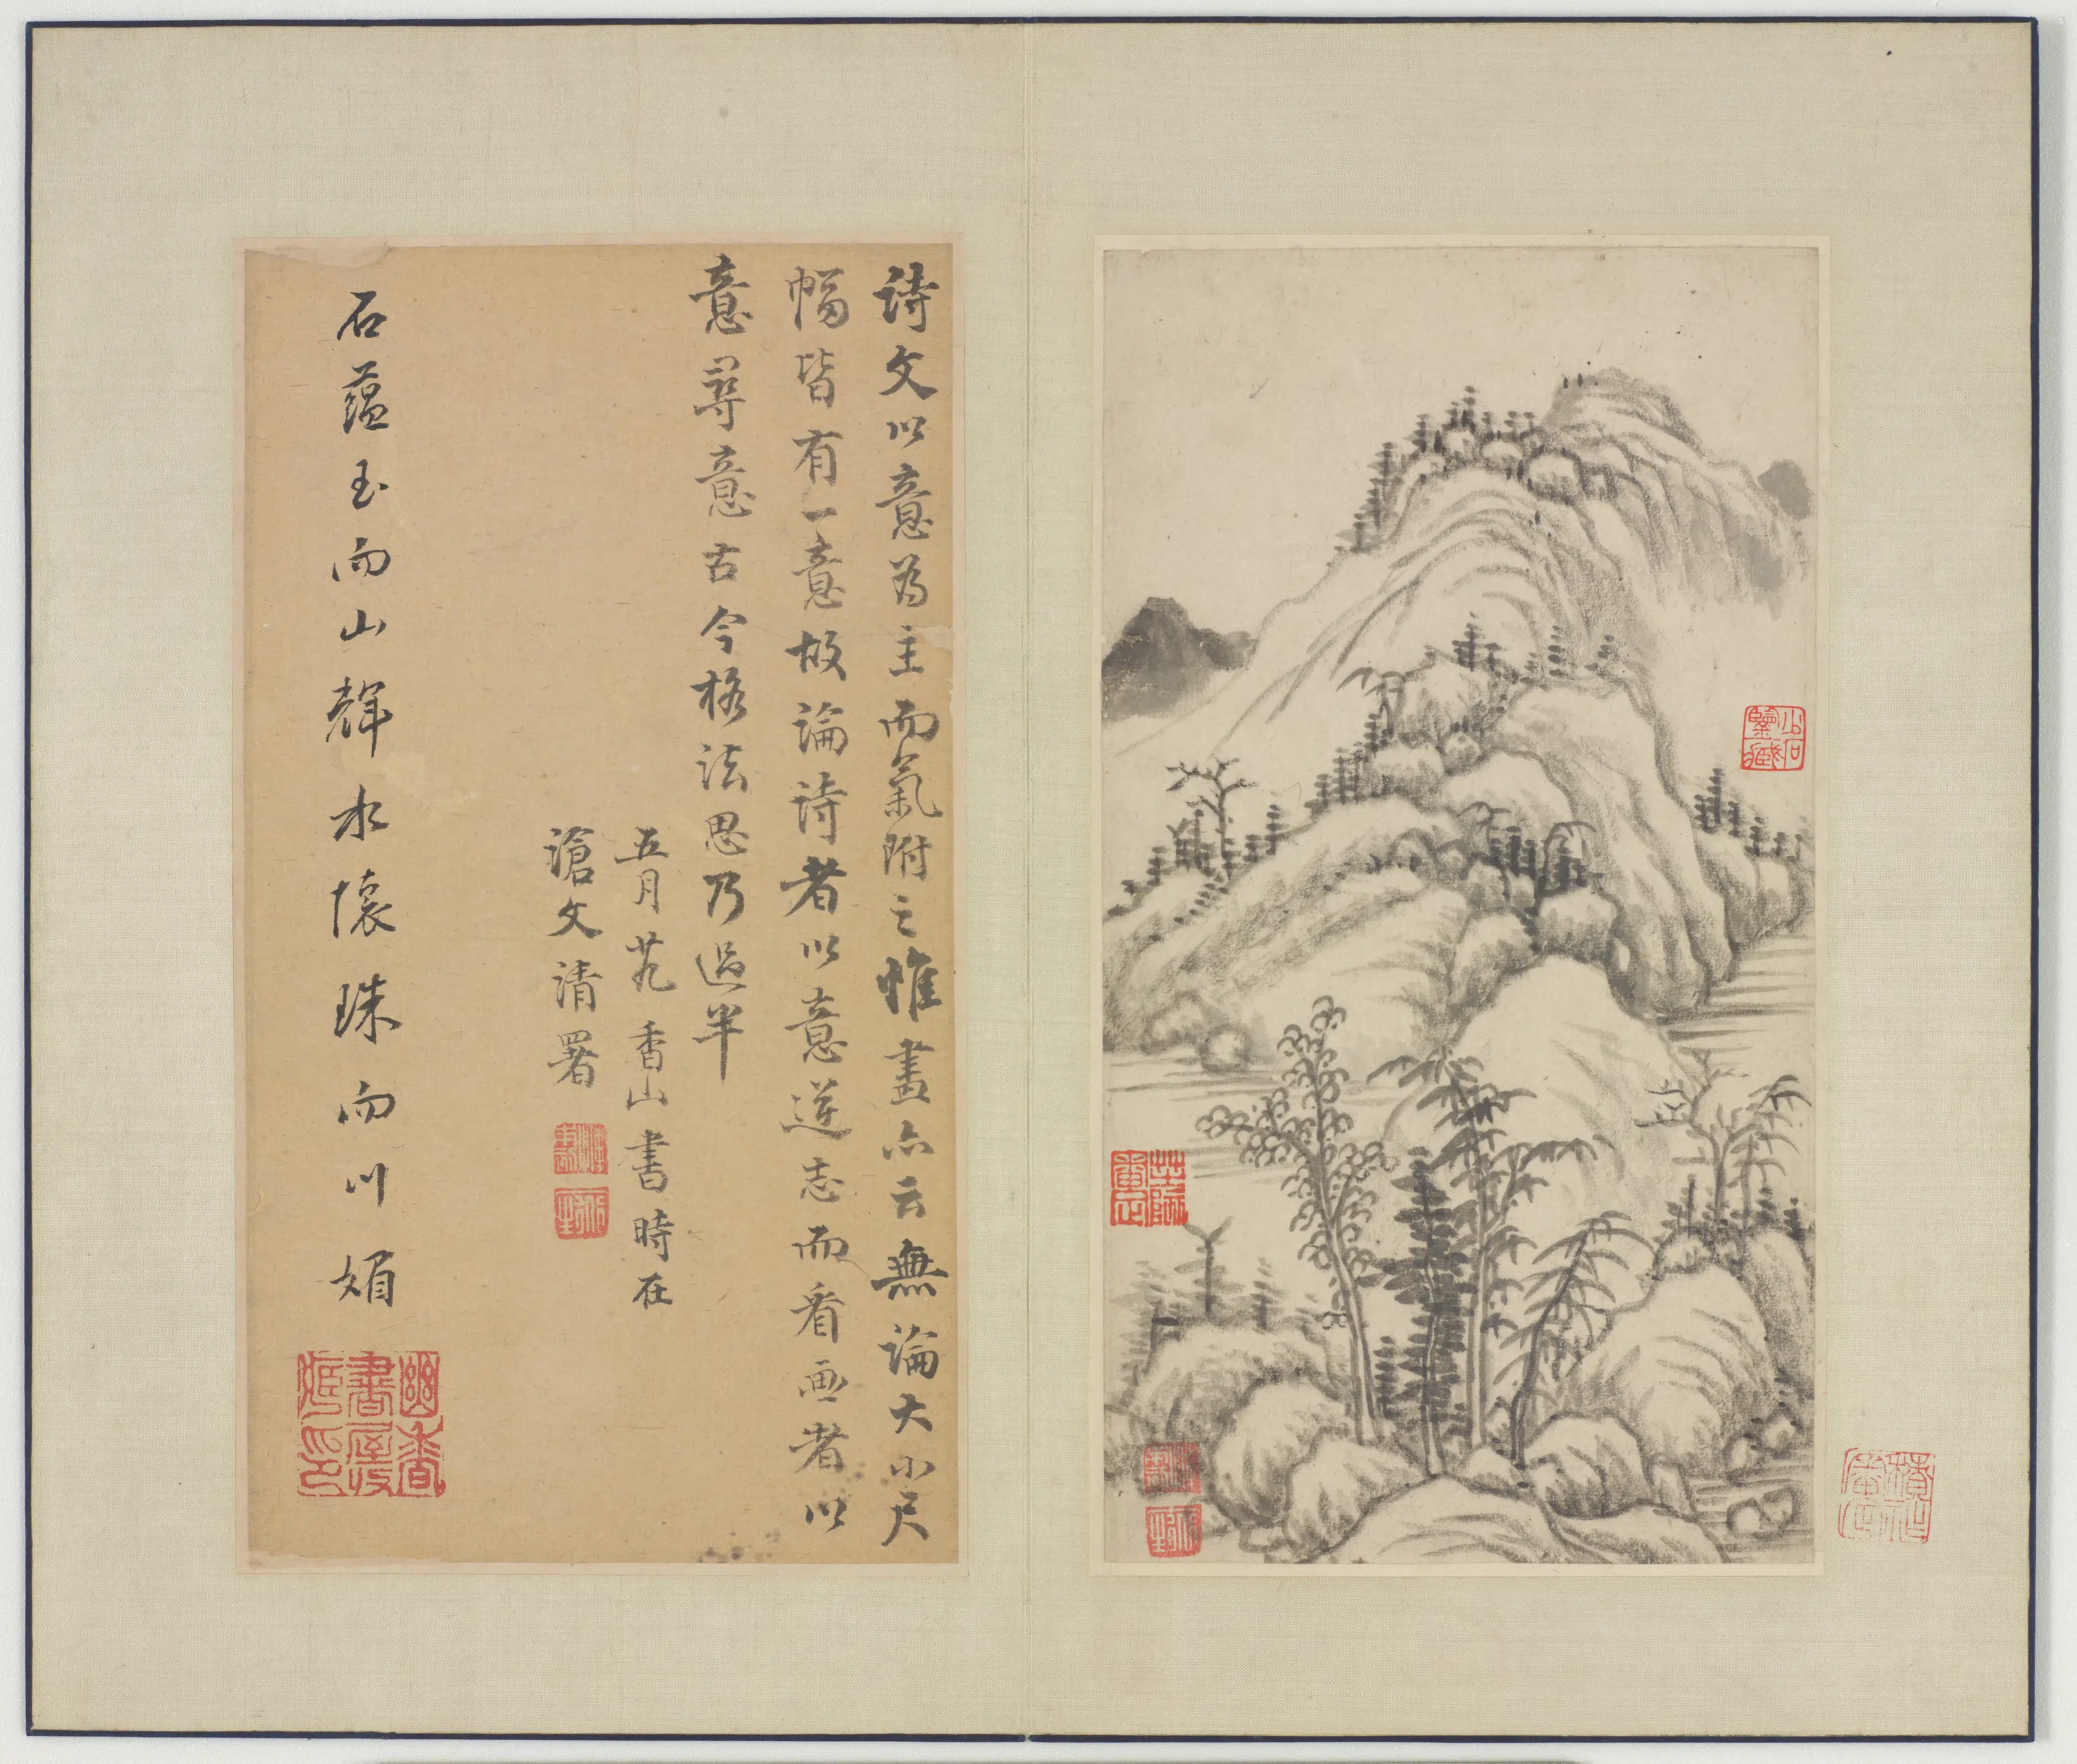 詩文以意為主而氣附之惟畫亦云無論大小尺
幅皆有一意故論詩者以意逆志而看画者以
意尋意古今格法思乃過半
五月
香山書時在
滄文清署
石蘊玉而山輝水懷珠而川媚
幽香書屋